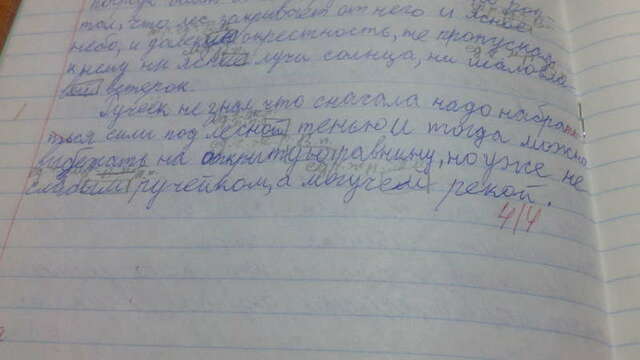 том, что лес закрывает от него и ясное
небо, и даль, окрестность, не пропускает
к нему ни ясные лучи солнца, ни шаловли
вый ветерок.
Ручеек не знал, что сначала надо набрать
ться силы под лесной тенью и тогда можно
выбежать на открытую равнину, но уже не
слабым ручейком, а могучей рекой.
4/4